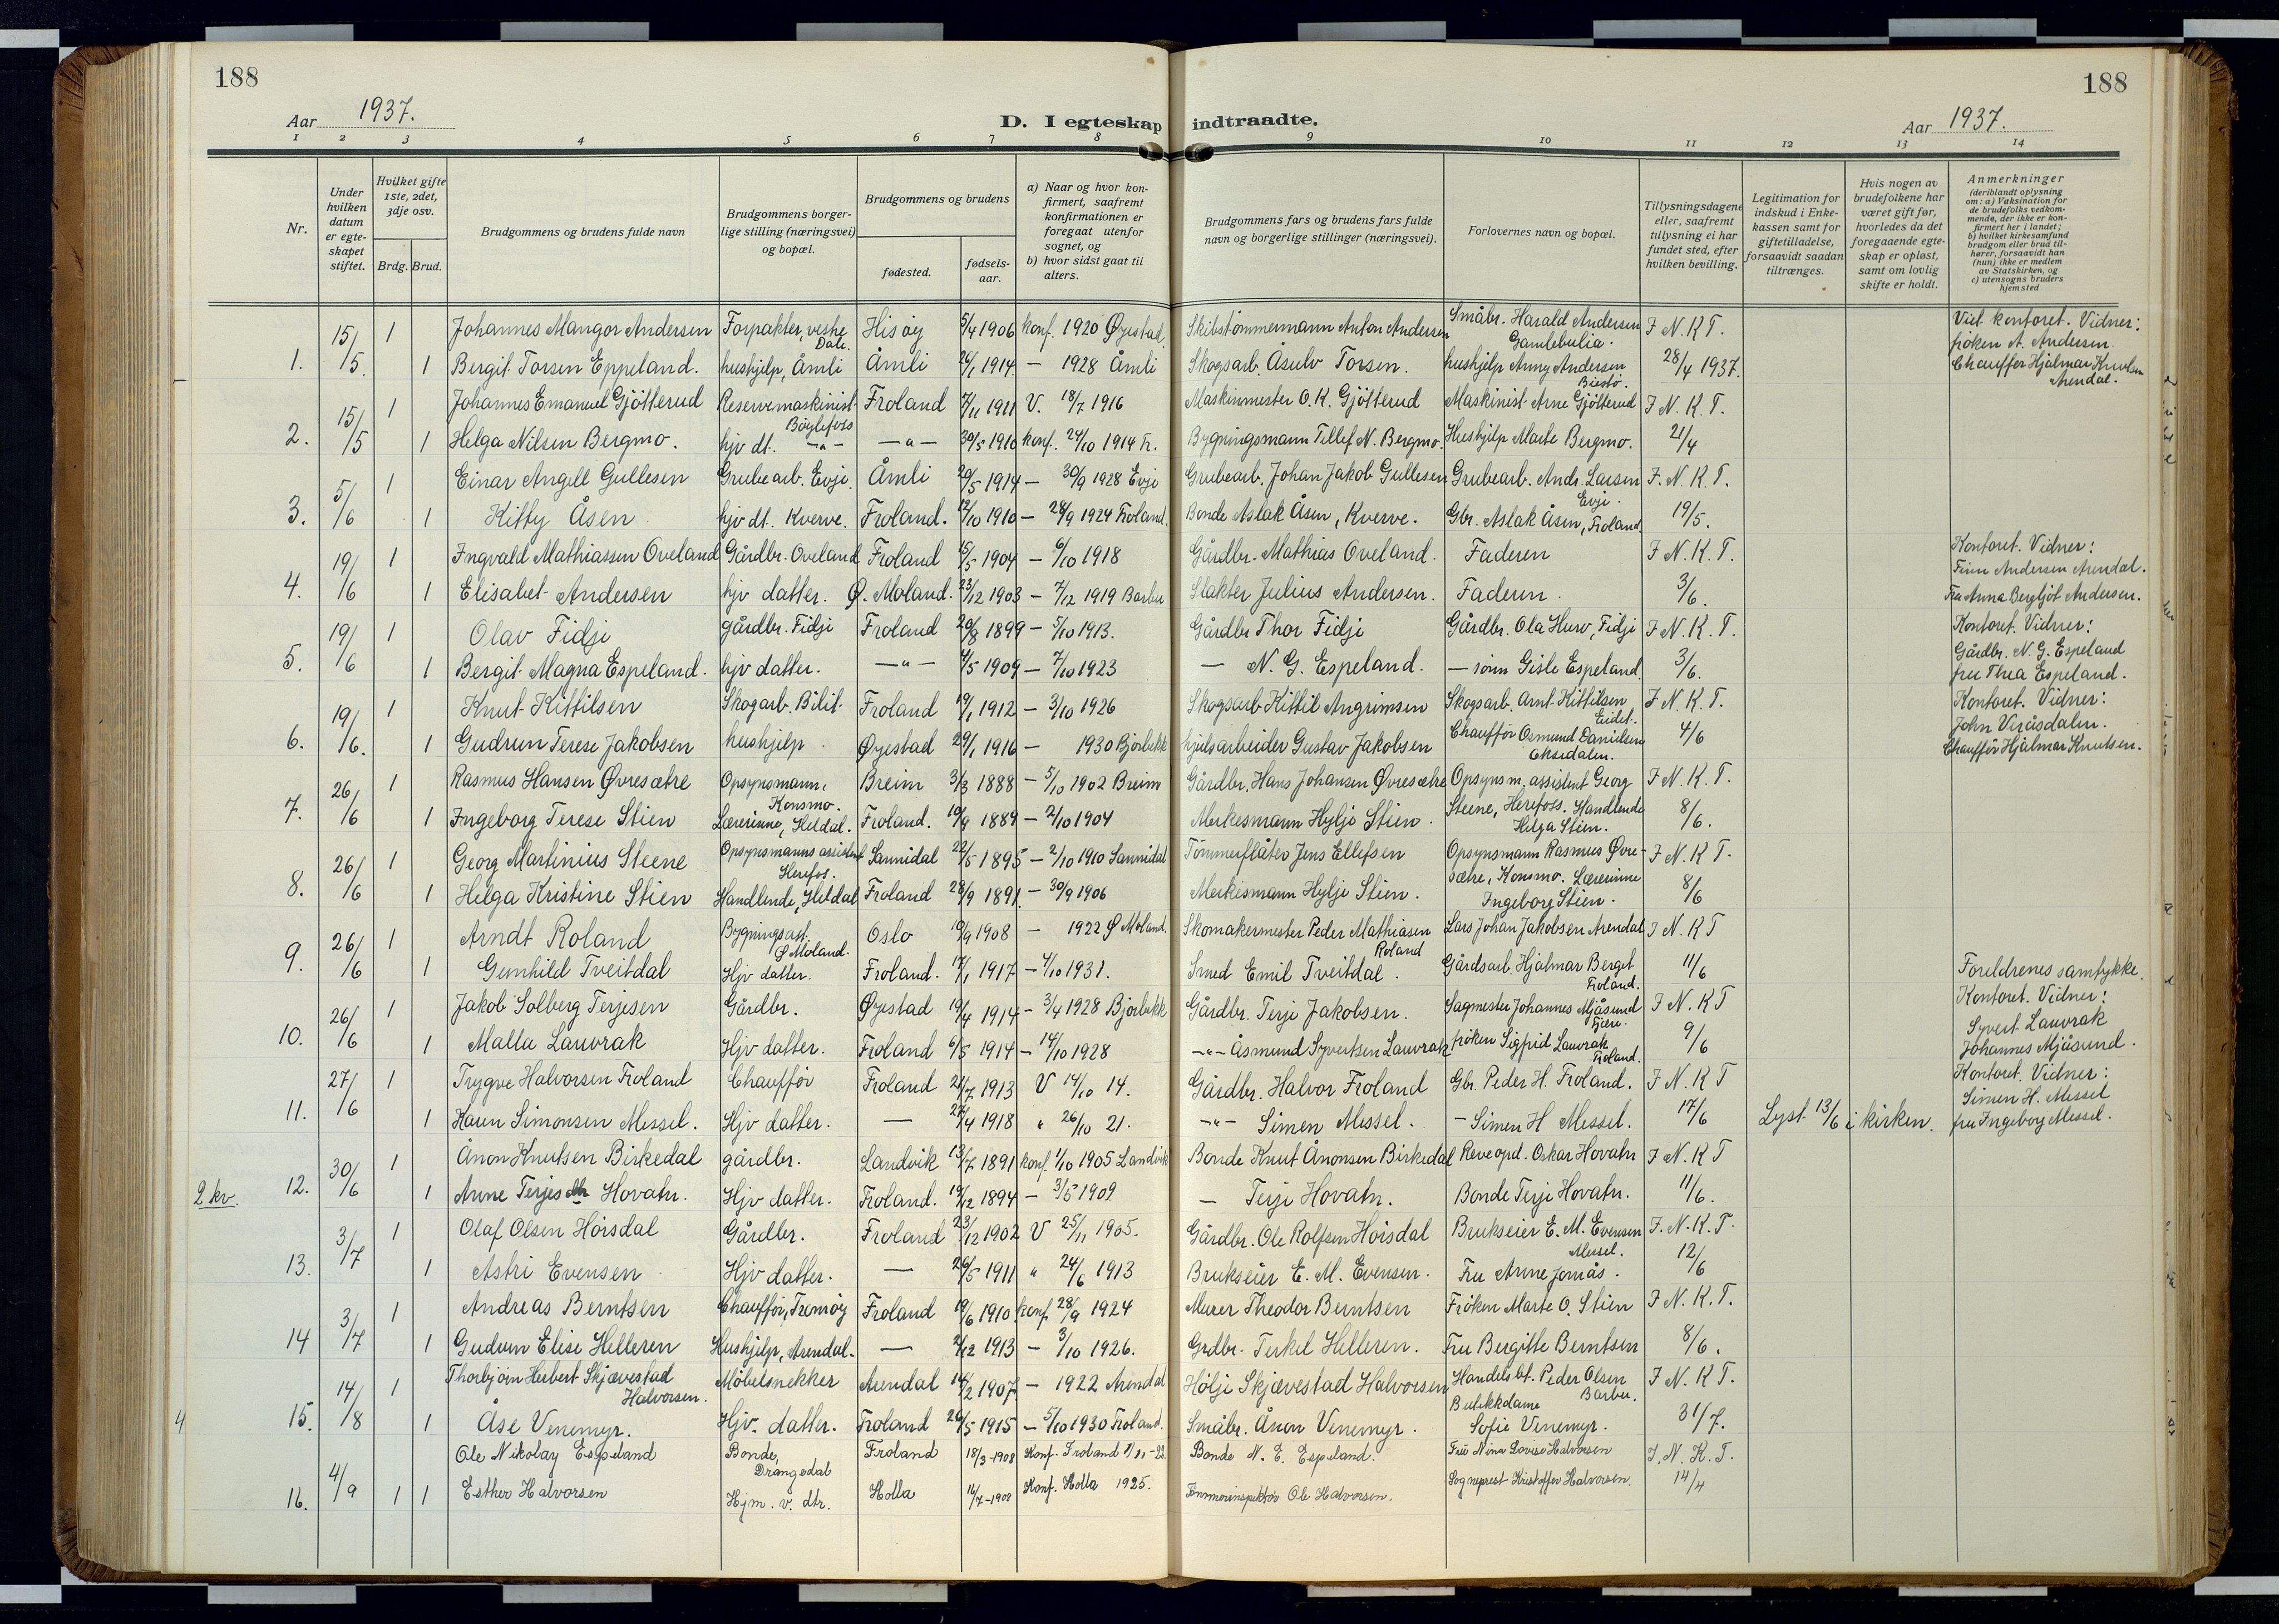 188
188
Aar 1937.
D. I egteskap indtraadte.
Aar 1937.
1 2 3 4 5 6 7 8 9 10 11 12 13 14
Nr.
Under hvilken datum er egteskapet stiftet.
Hvilket gifte 1ste, 2det, 3dje osv.
Brdg. Brud.
Brudgommens og brudens fulde navn
Brudgommens borgerlige stilling (næringsvei) og bopæl.
Brudgommens og brudens
fødested.
fødselsaar.
a) Naar og hvor konfirmert, saafremt konfirmationen er foregaat utenfor sognet, og
b) hvor sidst gaat til alters.
Brudgommens fars og brudens fars fulde navn og borgerlige stillinger (næringsvei).
Forlovernes navn og bopæl.
Tillysningsdagene eller, saafremt tillysning ei har fundet sted, efter hvilken bevilling.
Legitimation for indskud i Enkekassen samt for giftetilladelse, forsaavidt saadan tiltrænges.
Hvis nogen av brudefolkene har været gift før, hvorledes da det foregaaende egteskap er opløst, samt om lovlig skifte er holdt.
Anmerkninger
(deriblandt oplysning om: a) Vaksination for de brudefolks vedkommende, der ikke er konfirmert her i landet; b) hvilket kirkesamfund brudgom eller brud tilhører, forsaavidt han (hun) ikke er medlem av Statskirken, og c) utensogns bruders hjemsted
1. 15/5 1 Johannes Mangor Andersen Forpakter, vestre Dale. Hisøy 5/4 1906 konf. 1920 Øyestad. Skibstømmermann Anton Andersen Småbr. Harald Andersen Gamlebulia. J N. K T. Viet kontoret. Vidner: frøken A. Andersen
1 Bergit Torsen Eppeland. hushjelp, Åmli Åmli 26/1 1914 — 1928 Åmli Skogsarb. Åsulv Torsen. hushjelp Anny Andersen 28/4 1937. Chauffør Hjalmar Knutsen Arendal.
2. 15/5 1 Johannes Emanuel Gjøtterud Reservemaskinist Bøylefoss Froland 7/11 1911 V. 18/7 1916 Maskinmester O. K. Gjøtterud Maskinist Arne Gjøtterud J N. K. T.
1 Helga Nilsen Bergmo. hjv dt. -"- -"- 30/5 1910 konf. 24/10 1914 Fr. Bygningsmann Tellef N. Bergmo. Hushjelp Marte Bergmo. 21/4
3. 5/6 1 Einar Angell Gullesen Grubearb. Evje. Åmli 20/5 1914 — 30/9 1928 Evje Grubearb. Johan Jakob Gullesen Grubearb. Andr. Larsen Evje. J. N. K. T.
1 Kitty Åsen hjv dt. Kverve. Froland. 12/10 1910 — 28/9 1924 Froland. Bonde Aslak Åsen, Kverve. Gbr. Aslak Åsen, Froland. 19/5.
4. 19/6 1 Ingvald Mathiassen Oveland Gårdbr. Oveland Froland 15/5 1904 — 6/10 1918 Gårdbr. Mathias Oveland. Faderen J N. K. T. Kontoret. Vidner: Finn Andersen Arendal.
1 Elisabet Andersen hjv datter. Ø. Moland. 23/12 1903 — 7/12 1919 Barbu Slakter Julius Andersen. Faderen. 3/6. Fru Anna Bergljot Andersen.
5. 19/6 1 Olav Fidje gårdbr. Fidje Froland 20/8 1899 — 5/10 1913. Gårdbr Thor Fidje Gårdbr. Ola Hurv, Fidje J N. K. T. Kontoret. Vidner: Gårdbr. N. G. Espeland
1 Bergit Magna Espeland. hjv datter. -"- 4/5 1909 — 7/10 1923 — N. G. Espeland. — sønn Gisle Espeland. 3/6. fru Thea Espeland.
6. 19/6. 1 Knut Kittilsen Skogarb. Bilit Froland 19/1 1912 — 3/10 1926 Skogsarb. Kittil Angrimsen Skogsarb. Arnt Kittilsen Eidet. J N. K. T. Kontoret. Vidner: John Veråsdalen.
1 Gudrun Terese Jakobsen hushjelp Øyestad 29/1 1916 — 1930 Bjorbekk hjulsarbeider Gustav Jakobsen Chauffør Osmund Danielsen Oksedalen. 4/6 Chauffør Hjalmar Knutsen.
7. 26/6 1 Rasmus Hansen Øvresætre Opsynsmann, Konsmo. Breim 3/3 1888 — 5/10 1902 Breim Gårdbr, Hans Johansen Øvresætre Opsynsm. assistent Georg Steene, Herefoss. Handlende Helga Stien. J N. K. T.
1 Ingeborg Terese Stien Lærerinne, Heldal. Froland. 10/9 1889 — 2/10 1904 Merkesmann Hylje Stien. 8/6.
8. 26/6 1 Georg Martinius Steene Opsynsmanns assistent Herefos. Sannidal 22/5 1895 — 2/10 1910 Sannidal Tømmerfløter Jens Ellefsen Opsynsmann Rasmus Øvresætre, Konsmo. Lærerinne Ingeborg Stien. J N. K T.
1 Helga Kristine Stien Handlende, Heldal Froland 28/9 1891. — 30/9 1906 Merkesmann Hylje Stien. 8/6
9. 26/6 1 Arndt Roland Bygningsast. Ø Moland. Oslo 10/9 1908 — 1922 Ø Moland. Skomakermester Peder Mathiasen Roland Lars Johan Jakobsen Arendal J N. K T
1 Gunhild Tveitdal Hjv datter. Froland. 17/1 1917 — 4/10 1931. Smed Emil Tveitdal. Gårdsarb. Hjalmar Berget Froland. 11/6 Foreldrenes samtykke.
10. 26/6 1 Jakob Solberg Terjesen Gårdbr. Øyestad 19/4 1914 — 3/4 1928 Bjorbekk Gårdbr. Terje Jakobsen. Sagmester Johannes Mjåsund Fjære. J N. K T Kontoret. Vidner: Syvert Lauvrak
1 Malla Lauvrak Hjv datter. Froland 6/5 1914 — 14/10 1928 -"- Åsmund Syvertsen Lauvrak frøken Sigfrid Lauvrak Froland. 9/6 Johannes Mjåsund.
11. 27/6 1 Trygve Halvorsen Froland Chauffør Froland 21/7 1913 V 14/10 14. Gårdbr. Halvor Froland Gbr. Peder H. Froland. J N. K T Kontoret. Vidner: Simen H. Messel
1 Karen Simonsen Messel. Hjv datter. — 27/4 1918 " 26/10 21. -"- Simen Messel. — Simen H Messel. 17/6 Lyst 13/6 i kirken. fru Ingeborg Messel.
12. 30/6 1 Ånon Knutsen Birkedal gårdbr. Landvik 13/7 1891 konf. 1/10 1905 Landvik Bonde Knut Ånonsen Birkedal Reveopd. Oskar Hovatn J N. K T
2 kv. 1 Anne Terjesdtr Hovatn. Hjv datter. Froland. 19/12 1894 — 3/5 1909 — Terje Hovatn. Bonde Terje Hovatn. 11/6.
13. 3/7 1 Olaf Olsen Hørsdal Gårdbr. Froland 23/12 1902 V 25/11 1905. Gårdbr. Ole Rolfsen Hørsdal Brukseier E. M. Evensen Messel. J. N. K. T.
1 Astri Evensen Hjv datter. — 26/5 1911 " 24/6 1913 Brukseier E. M. Evensen. Fru Anne Jomås. 12/6
14 3/7 1 Andreas Berntsen Chauffør, Tromøy Froland 19/6 1910 konf. 28/9 1924 Murer Theodor Berntsen Frøken Marte O. Stien J N. K. T.
1 Gudrun Elise Helleren Hushjelp, Arendal. — 2/12 1913 — 3/10 1926. Grdbr. Terkel Helleren. Fru Bergitte Berntsen 8/6.
15. 14/8 1 Thorbjørn Herbert Skjævestad Halvorsen. Møbelsnekker Arendal 14/2 1907. — 1922 Arendal Hølje Skjævestad Halvorsen Handelsbt. Peder Olsen Barbu. J N. K T.
4 1 Åse Venemyr. Hjv. datter. Froland 26/5 1915 — 5/10 1930 Froland. Småbr. Ånon Venemyr. Butikkdame Sofie Venemyr. 31/7.
16. 4/9 1 1 Ole Nikolay Espeland Bonde, Drangedal Froland 18/3-1908 Konf. Froland Bonde N. E. Espeland. Fru Nina Lovise Halvorsen J. N. K. T.
Esther Halvorsen Hjm. v. dtr. Holla 16/7-1908 Konf. Holla 1925. Tømmerinspektør Ole Halvorsen. Sogneprest Kristoffer Halvorsen. 14/4